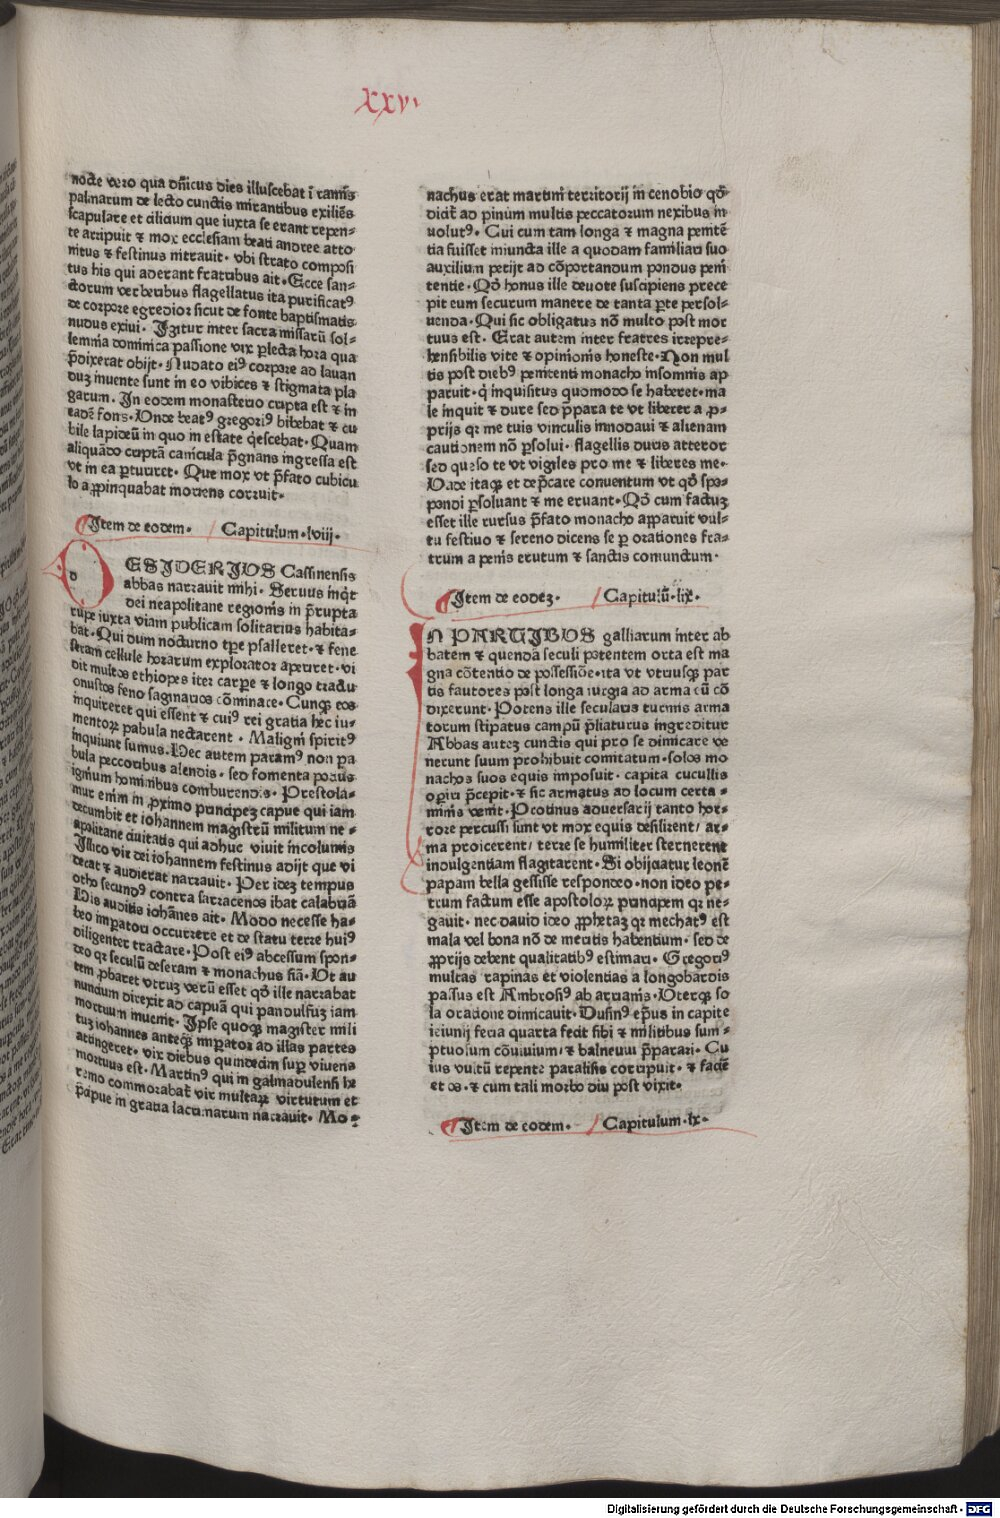 XXV·
nocte vero qua dn̄icus dies illuscebat ī ramis
palmarum de lecto cunctis mirantibus exiliēs
scapulare et cilicium que iuxta se erant repen-
te arripuit ⁊ mox ecclesiam beati andree atto
nitus ⁊ festinus intrauit· vbi strato composi
tus his qui aderant fratribus ait· Ecce san-
ctorum verberibus flagellatus ita purificatꝰ
de corpore egredior sicut de fonte baptismatis
nudus exiui· Igitur inter sacra missarū sol-
lemnia dominica passione vix ꝑlecta hora qua
p̄dixerat obijt· Nudato eiꝰ corpore ad lauan
duȝ inuente sunt in eo vibices ⁊ stigmata pla
garum· In eodem monasterio cripta est ⁊ in
eadē fons· Vnde beatꝰ gregoriꝰ bibebat ⁊ cu
bile lapideū in quo in estate q̄escebat· Quam
aliquādo criptā canicula p̄gnans ingressa est
vt in ea ꝑturiret· Que mox vt p̄fato cubicu
lo aꝓpinquabat moriens corruit·
Item de eodem· Capitulum·lviij·
d
ESIDERIVS Cassinensis
abbas narrauit mihi· Seruus inq̄t
dei neapolitane regionis in p̄rupta
rupe iuxta viam publicam solitarius habita-
bat· Qui dum nocturno tꝑe psalleret· ⁊ fene
stram cellule horarum explorator aperiret· vi
dit multos ethiopes iter carpe ⁊ longo tractu
onustos feno saginarios cōminare· Cunqꝫ eos
inquireret qui essent ⁊ cuiꝰ rei gratia hec iu-
mentoꝝ pabula nectarent· Maligni spiritꝰ
inquiunt sumus· Hec autem paramꝰ non pa
bula peccoribus alendis· sed fomenta potius
ignium hominibus comburendis· Prestola-
mur enim in ꝓximo principeȝ capue qui iam
decumbit et iohannem magistrū militum ne-
apolitane ciuitatis qui adhuc viuit incolumis
Illico vir dei iohannem festinus adijt que vi
derat ⁊ audierat narrauit· Per ideȝ tempus
otho secundꝰ contra sarracenos ibat calabriā
His auditis iohānes ait· Modo necesse ha-
beo impatori occurrere et de statu terre huiꝰ
diligenter tractare· Post eiꝰ abcessum spon-
deo qꝛ seculū deseram ⁊ monachus fiā· Vt au
tem ꝓbaret vtruȝ verū esset qd̄ ille narrabat
nuncium direxit ad capuā qui pandulfuȝ iam
mortuum inuenit· Ipse quoqꝫ magister mili
tuȝ iohannes anteqꝫ imꝑator ad illas partes
attingeret· vix diebus quindecim suꝑ viuens
mortuus est· Martinꝰ qui in galmadulensi he
remo commorabat̄ vir multaꝝ virtutum et
p̄cipue in gratia lacrimarum narrauit· Mo-
nachus erat martini territorij in cenobio qd̄
dicit̄ ad pinum multis peccatorum nexibus in
uolutꝰ· Cui cum tam longa ⁊ magna penitē
tia fuisset iniuncta ille a quodam familiari suo
auxilium petijt ad cōportandum pondus peni
tentie· Qd̄ honus ille deuote suscipiens prece
pit eum securum manere de tanta ꝑte persol-
uenda· Qui sic obligatus nō multo post mor
tuus est· Erat autem inter fratres irrepre-
hensibilis vite ⁊ opinionis honeste· Non mul
tis post diebꝰ penitenti monacho insomnis ap
paruit· q̇ inquisitus quomodo se haberet· ma
le inquit ⁊ dure sed p̄para te vt liberer a ꝓ-
prijs qꝛ me tuis vinculis innodaui ⁊ alienam
cautionem nō ꝑsolui· flagellis duris atteror
sed queso te vt vigiles pro me ⁊ liberes me·
Vade itaqꝫ et dep̄care conuentum vt qd̄ spo-
pondi ꝑsoluant ⁊ me eruant· Qd̄ cum factuȝ
esset ille rursus p̄fato monacho apparuit vul-
tu festiuo ⁊ sereno dicens se ꝑ orationes fra-
trum a penis erutum ⁊ sanctis coniunctum·
Item de eodeȝ· Capitulū·lix·
N PARTIBVS galliarum inter ab
batem ⁊ quendā seculi potentem orta est ma
gna cōtentio de possessiōe· ita vt vtriusqꝫ par
tis fautores post longa iurgia ad arma cū cō
dixerunt· Potens ille secularis turmis arma
torum stipatus campū p̄liaturus ingreditur
Abbas auteȝ cunctis qui pro se dimicare ve
nerunt suum prohibuit comitatum· solos mo
nachos suos equis imposuit· capita cucullis
oꝑiri p̄cepit· ⁊ sic armatus ad locum certa-
minis venit· Protinus aduersarij tanto hor-
rore percussi sunt vt mox equis desilirent/ ar-
ma proicerent/ terre se humiliter sternerent
indulgentiam flagitarent· Si obijciatur leonē
papam bella gessisse respondeo· non ideo pe-
trum factum esse apostoloꝝ principem qꝛ ne-
gauit· nec dauid ideo ꝓphetaȝ qꝛ mechatꝰ est
mala vel bona nō de meritis habentium· sed de
ꝓprijs debent qualitatibꝰ estimari· Gregoriꝰ
multas rapinas et violentias a longobardis
passus est Ambrosiꝰ ab arrianis· Vterqꝫ so
la oratione dimicauit· Dusinꝰ ep̄us in capite
ieiunij feria quarta fecit sibi ⁊ militibus sum-
ptuosum cōuiuium/ ⁊ balneum p̄parari· Cu
ius vultū repente paralisis corripuit· ⁊ faciē
et os· ⁊ cum tali morbo diu post vixit·
Item de eodem· Capitulum·lx·
Digitalisierung gefördert durch die Deutsche Forschungsgemeinschaft - DFG